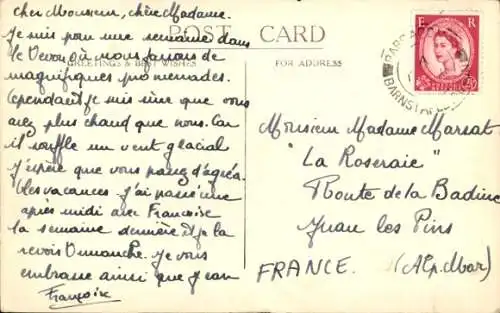 Cher Monsieur, chère Madame.
Je suis pour une semaine dans
le Devon où nous faisons de
magnifiques promenades.
Cependant je suis sûre que vous
avez plus chaud que nous. Car
il souffle un vent glacial
J'espère que vous passez d'agréa-
bles vacances. J'ai passé une
après midi avec Françoise
la semaine dernière et je la
revois Dimanche. Je vous
embrasse ainsi que Jean
Françoise
POST CARD
GREETINGS & BEST WISHES
FOR ADDRESS
E R
BARNSTAPLE
Monsieur Madame Marsat
"La Roseraie"
Route de la Badine
Juan les Pins
FRANCE. (Alp. Mar)